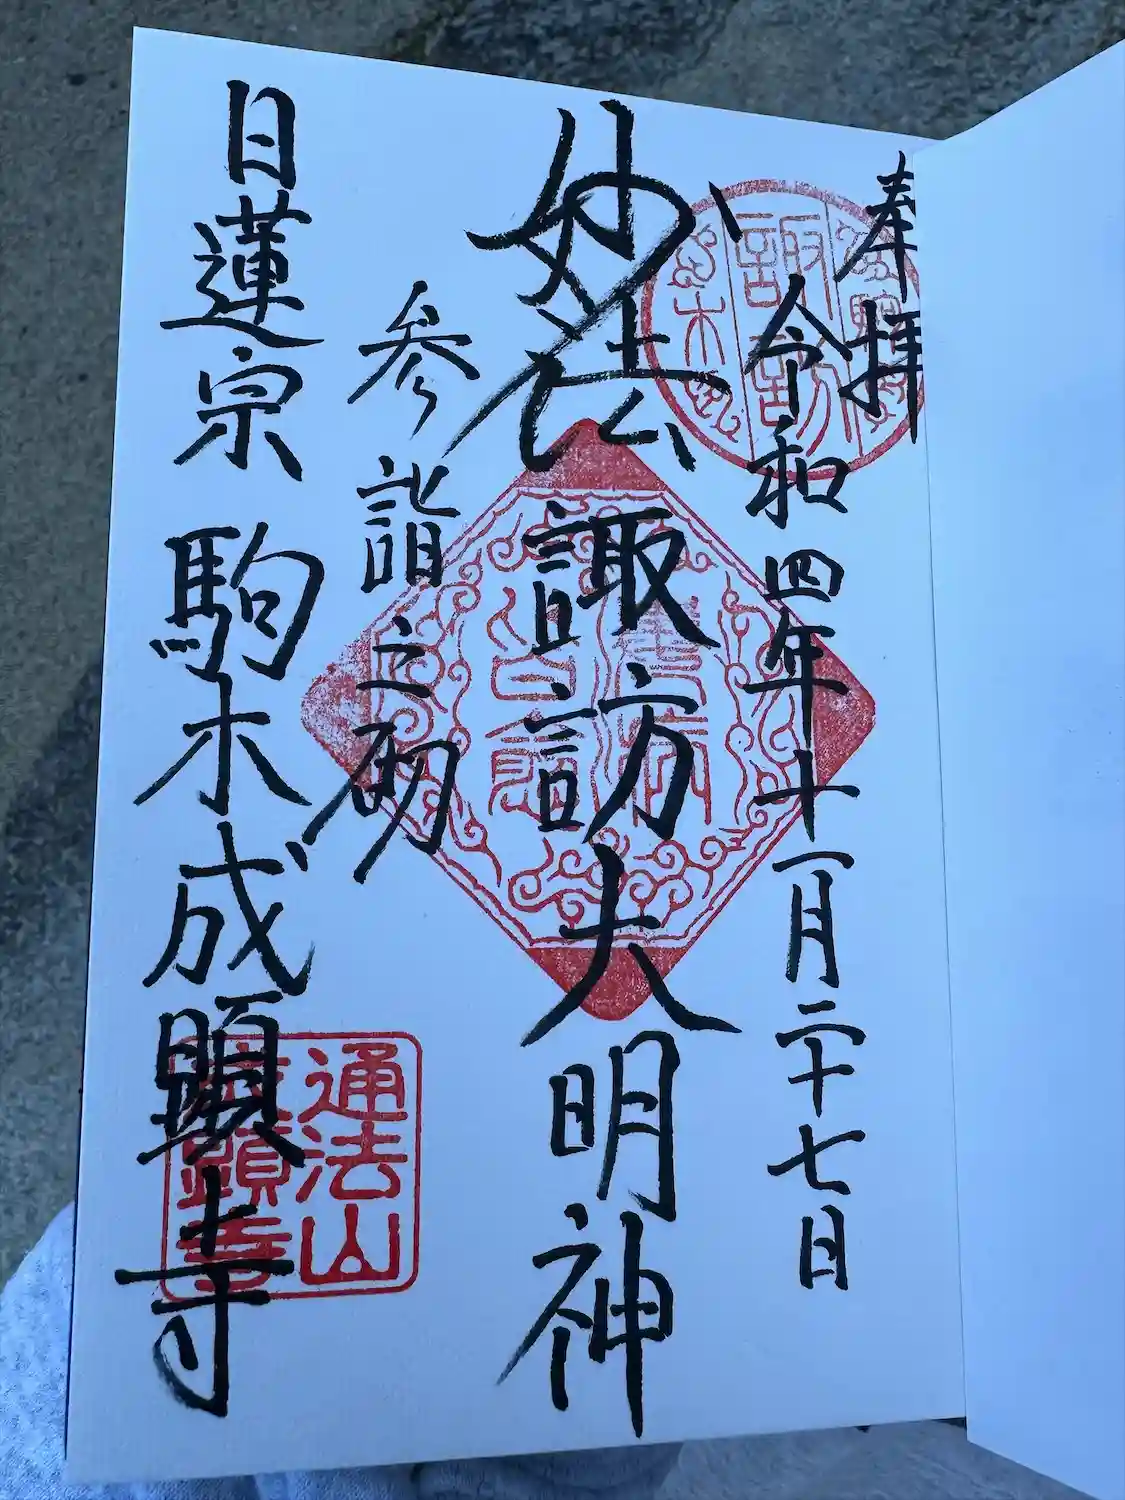 奉拝
令和四年十一月二十七日
妙法諏訪大明神
参詣之砌
日蓮宗 駒木成顕寺
諏訪
駒木
通法山
成顕寺